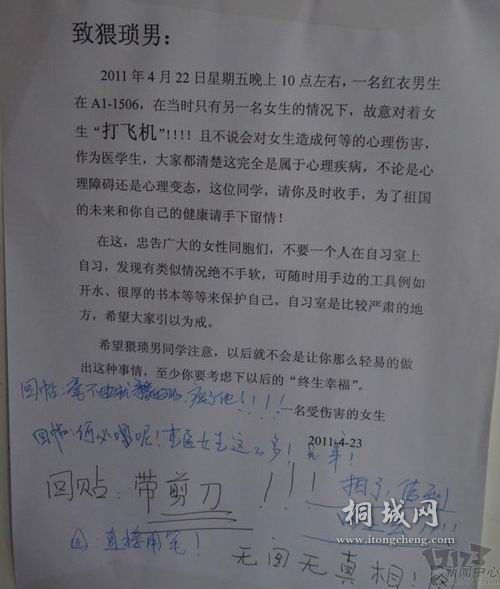 致猥琐男：
2011年4月22日星期五晚上10点左右，一名红衣男生
在A1-1506，在当时只有另一名女生的情况下，故意对着女
生“打飞机”!!!! 且不说会对女生造成何等的心理伤害，
作为医学生，大家都清楚这完全是属于心理疾病，不论是心
理障碍还是心理变态，这位同学，请你及时收手，为了祖国
的未来和你自己的健康请手下留情！
在这，忠告广大的女性同胞们，不要一个人在自习室上
自习，发现有类似情况绝不手软，可随时用手边的工具例如
开水、很厚的书本等等来保护自己。自习室是比较严肃的地
方，希望大家引以为戒。
希望猥琐男同学注意，以后就不会是让你那么轻易的做
出这种事情，至少你要考虑下以后的“终生幸福”。
回帖：毫不犹
他！!!!
一名受伤害的女生
回帖：何必嘿呢！医女生这么多！
2011-4-23
回贴：带剪刀!!!
回：直接用笔！
无图无真相！
桐城网
www.itongcheng.com
17173
新闻中心